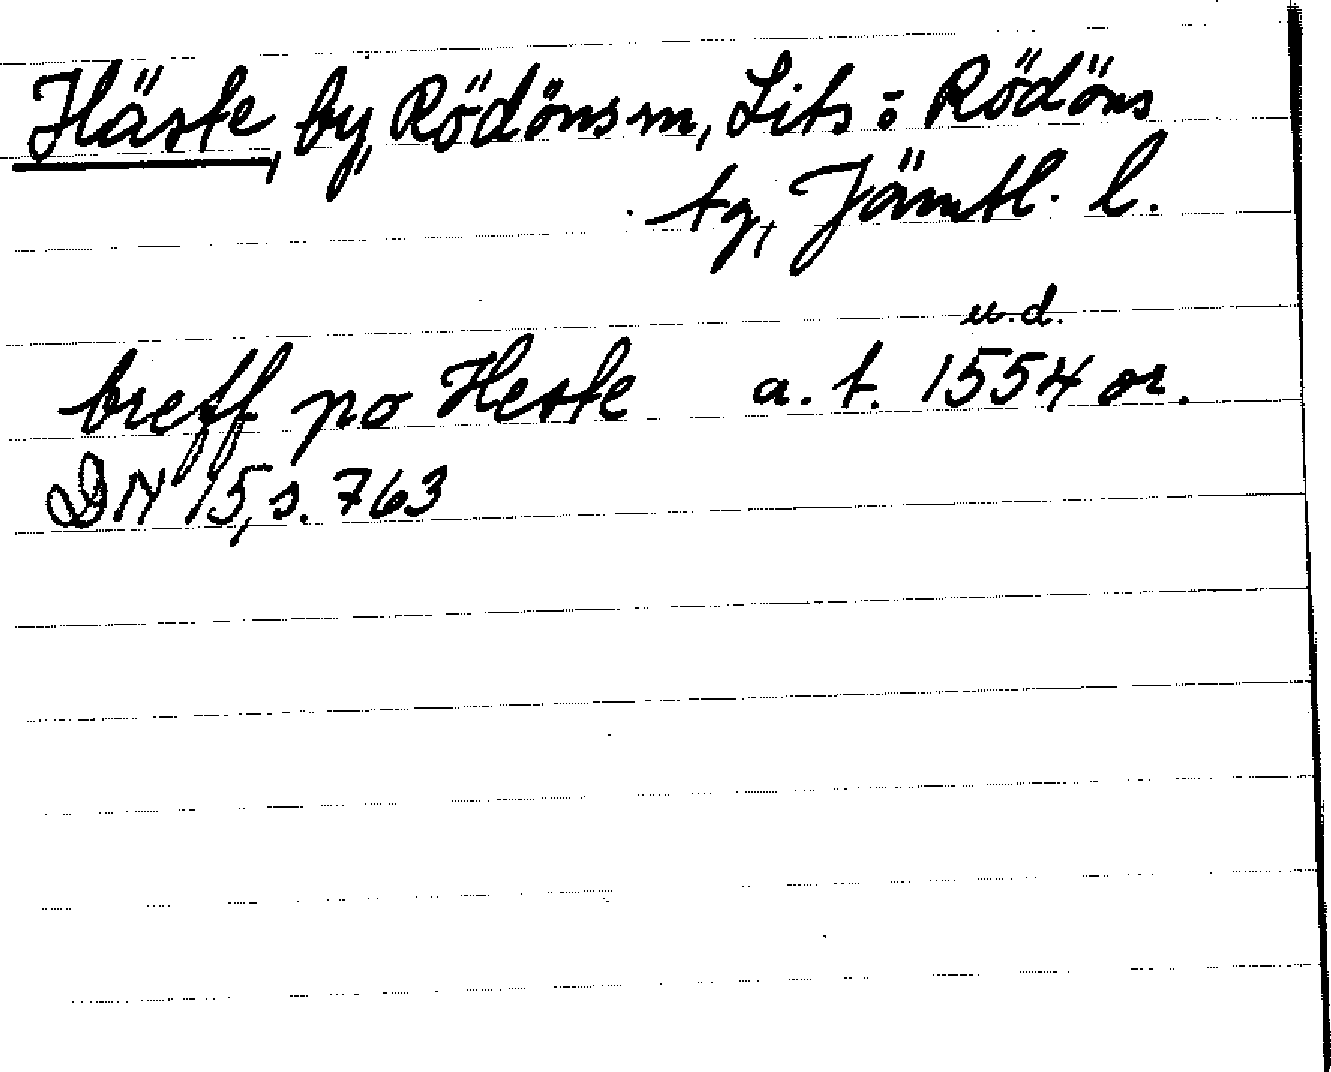 Häste, by, Rödöns sn, Lits o Rödöns
tg, Jämtl. l.
u.d.
breff po Heste a. t. 1554 or.
DN 15, s. 763